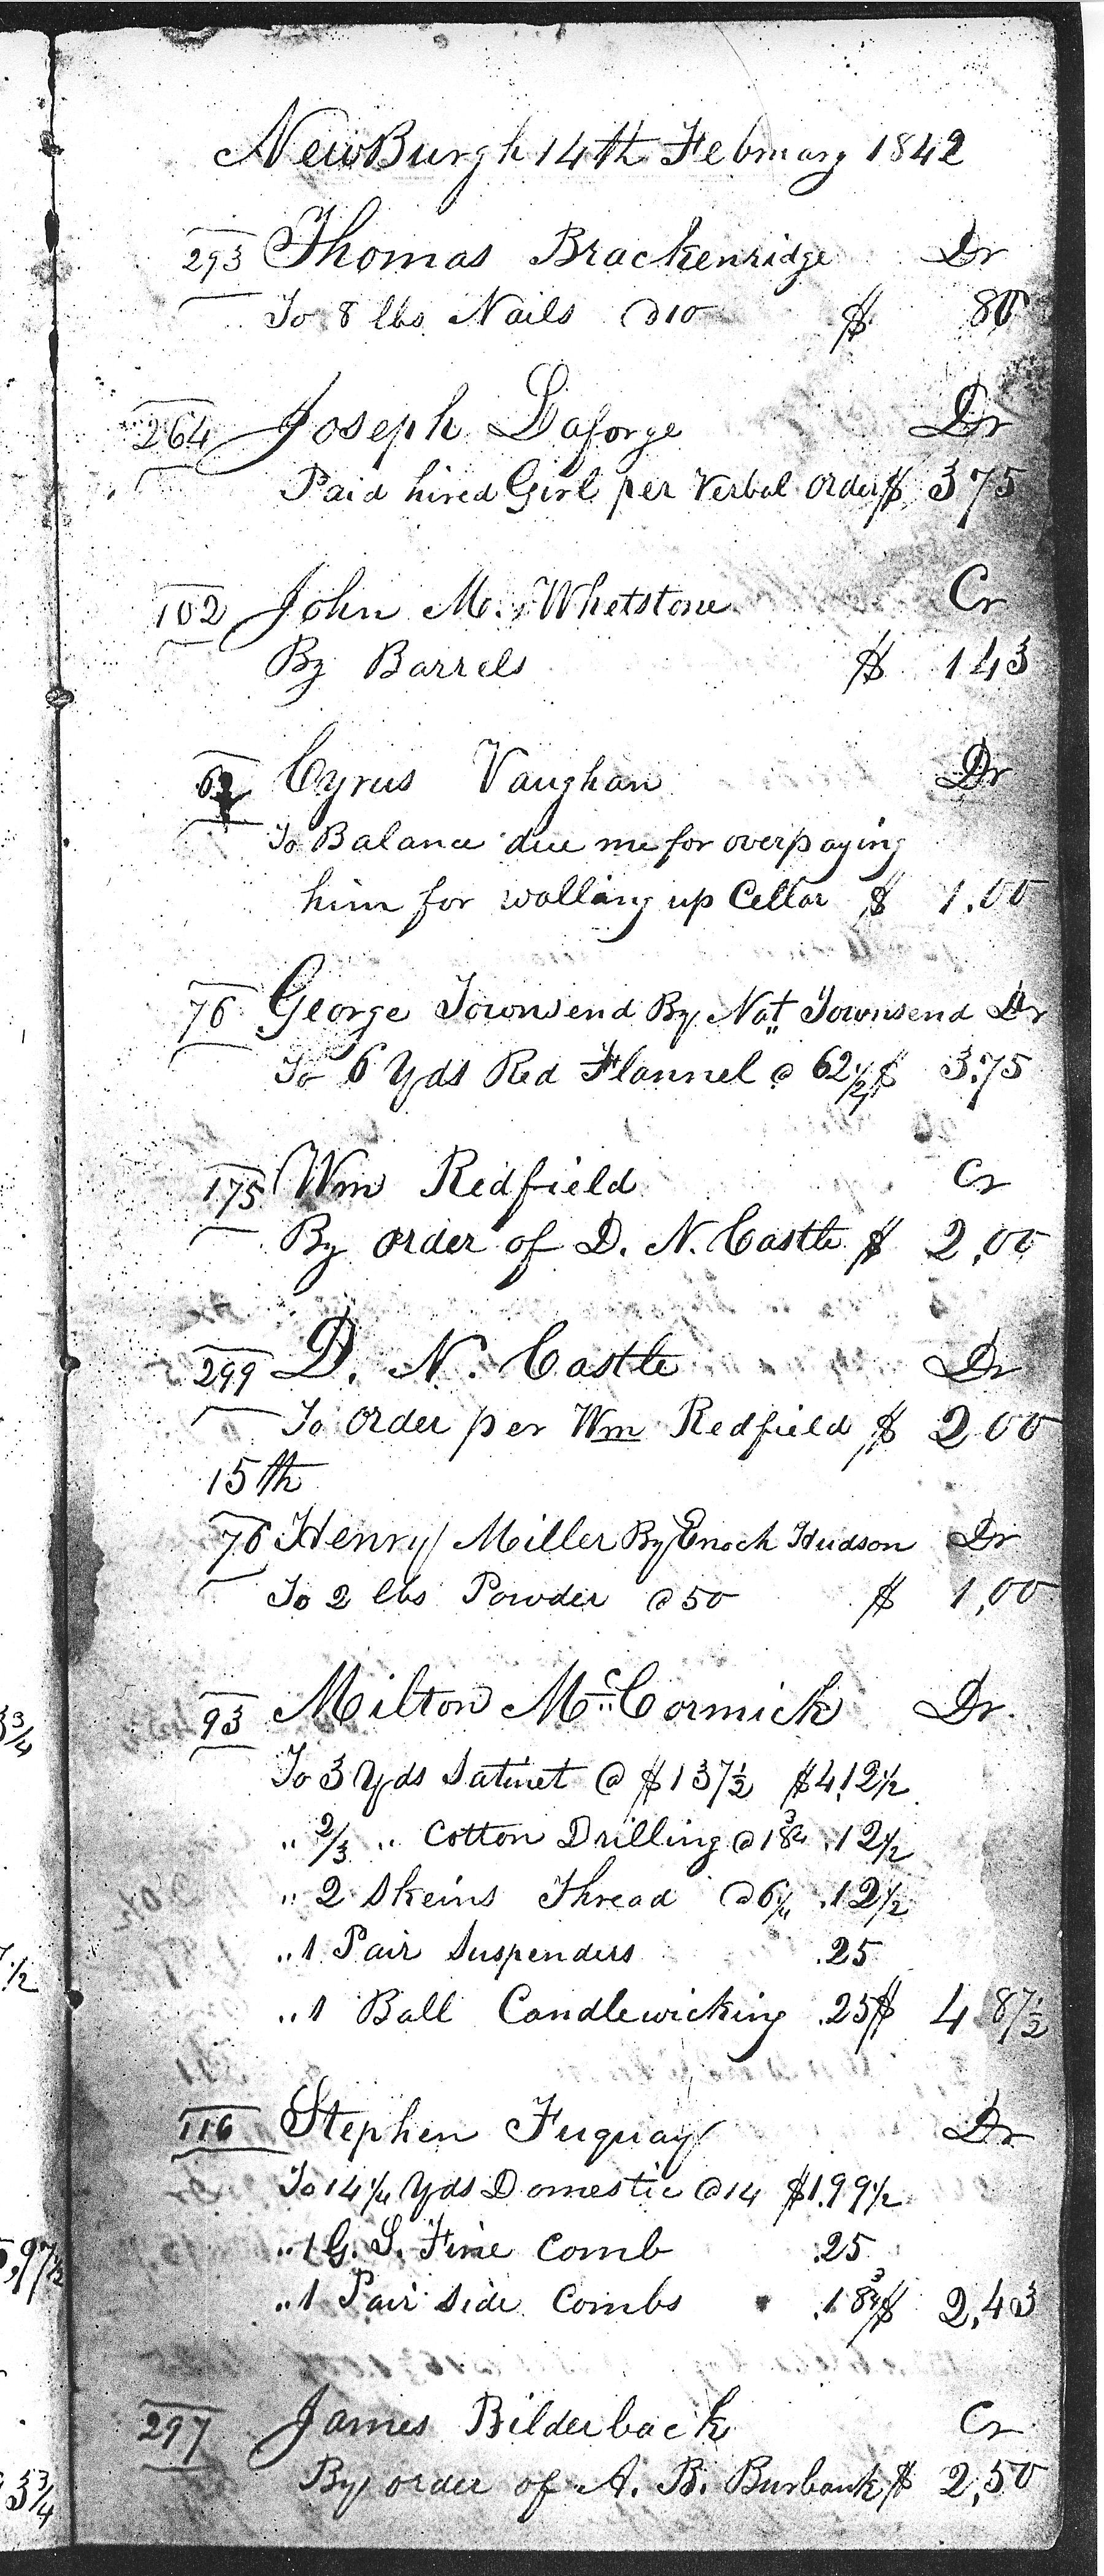 NewBurgh 14th February 1842
293 Thomas Brackenridge Dr
To 8 lbs Nails @10 $ 80
264 Joseph Laforge Dr
Paid hired Girl per Verbal order $ 3 75
102 John M. Whetstone Cr
By Barrels $ 1 43
Cyrus Vaughan Dr
To Balance due me for overpaying
him for walling up Cellar $ 1.00
76 George Townsend By Nat Townsend Dr
To 6 Yds Red Flannel @ 62 1/2 $ 3.75
175 Wm Redfield Cr
By order of D. N. Castle $ 2,00
299 D. N. Castle Dr
To order per Wm Redfield $ 2 00
15th
76 Henry Miller By Enoch Hudson Dr
To 2 lbs Powder @ 50 $ 1,00
3/4
93 Milton McCormick Dr
To 3 Yds Satinet @ $1 37 1/2 $4,12 1/2
" 2/3 " Cotton Drilling @ 18 3/4 .12 1/2
" 2 Skeins Thread @ 6 1/4 .12 1/2
1/2
" 1 Pair Suspenders .25
" 1 Ball Candlewicking .25 $ 4 87 1/2
116 Stephen Fuquay Dr
To 14 1/4 Yds Domestic @ 14 $1.99 1/2
,97 1/2
" 1 G. S. Fine Comb .25
" 1 Pair Side Combs .18 3/4 $ 2,43
297 James Bilderback Cr
3 3/4
By order of A. B. Burbank $ 2,50